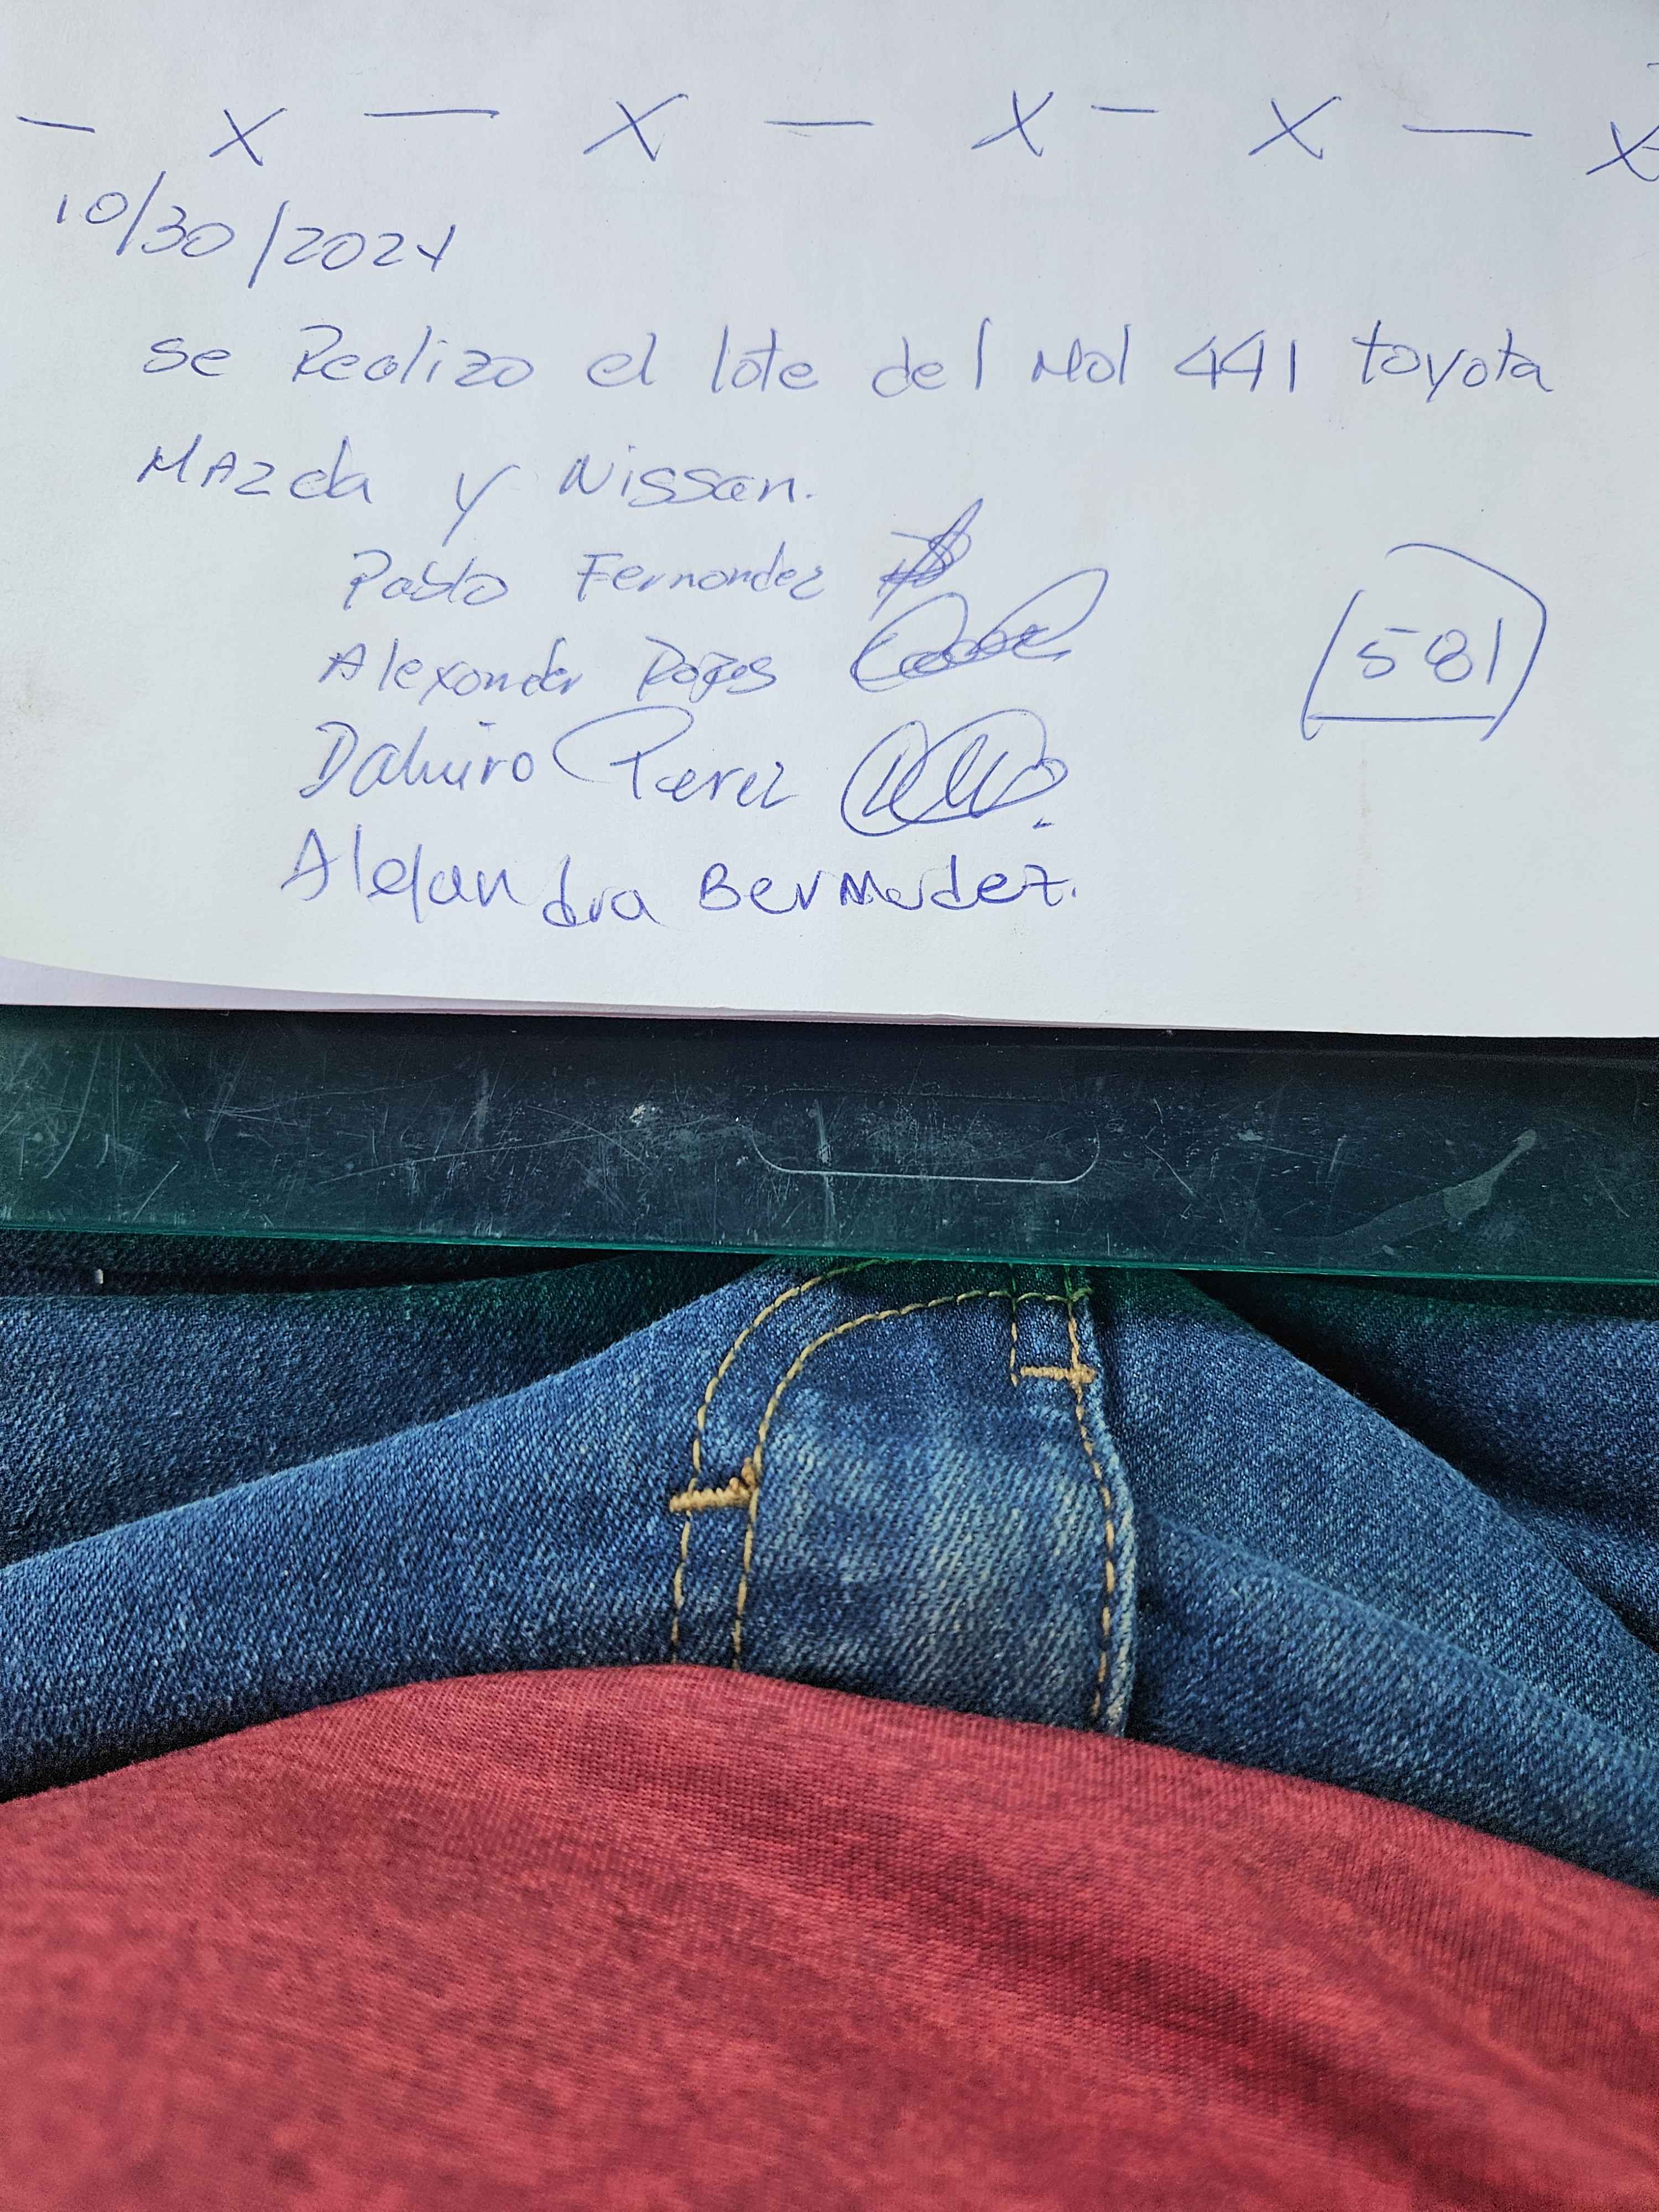 — X — X — X — X — X
10/30/2024
se Realizo el lote del Mol 441 toyota
MAzda y Nissan.
Pablo Fernandez
Alexander Rojas
581
Perez
Alejandra Bermudez.